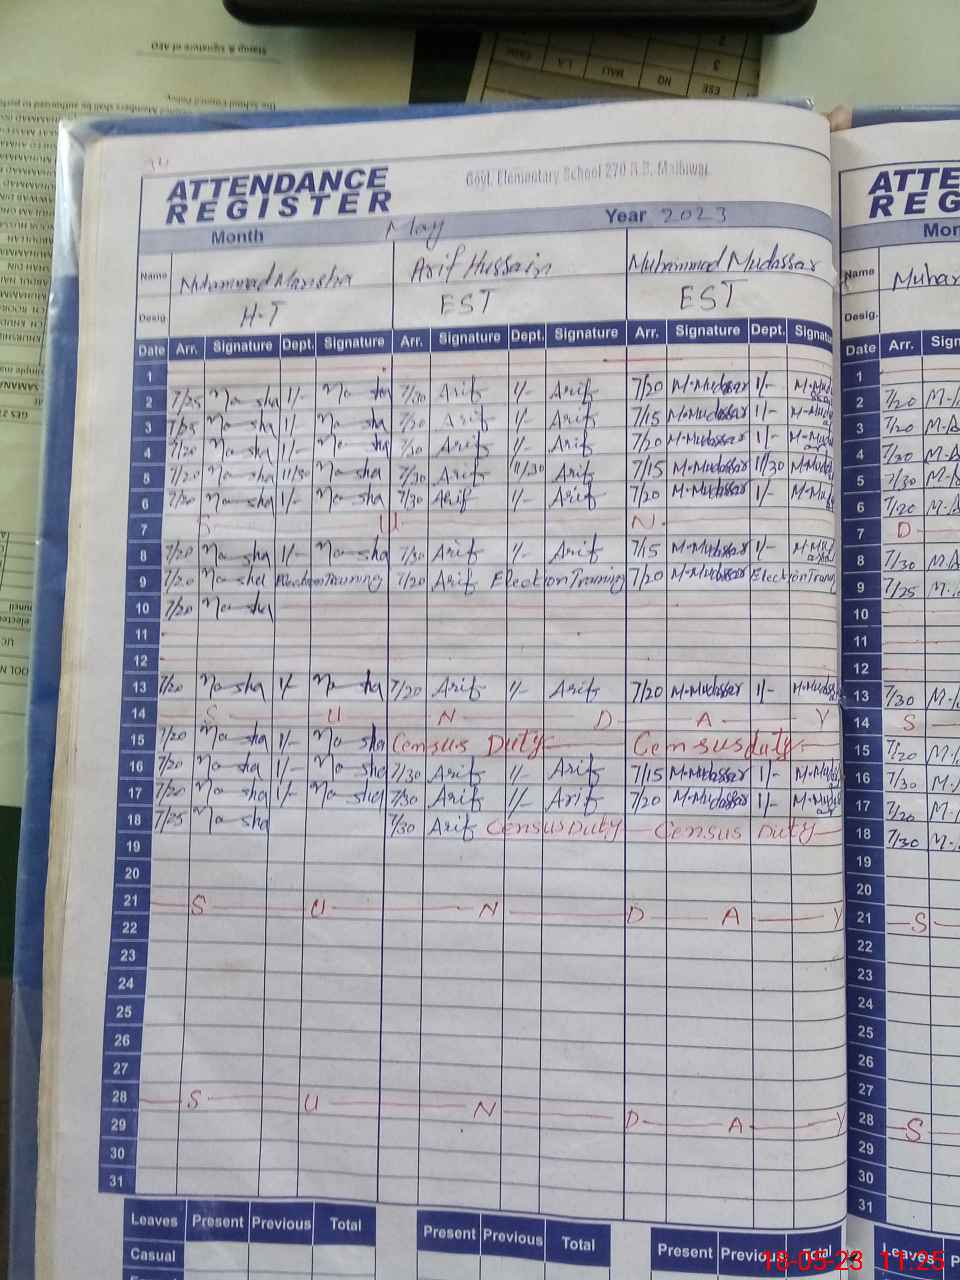 Stamp & Signature of AEO
ESE NQ MALI L.A
3
2
ATTENDANCE
REGISTER
Govt. Elementary School 270 R.B. Maibiwal
Month May Year 2023
Name Muhammad Mansha Arif Hussain Muhammad Mudassar
Desig. H-T EST EST
Date Arr. Signature Dept. Signature Arr. Signature Dept. Signature Arr. Signature Dept. Signatu
1
2 7/25 Mansha 1/- Mansha 7/30 Arif 1/- Arif 7/20 M.Mudassar 1/- M.Mud
3 7/25 Mansha 1/- Mansha 7/20 Arif 1/- Arif 7/15 M.Mudassar 1/- M.Mud
4 7/20 Mansha 1/- Mansha 7/30 Arif 1/- Arif 7/20 M.Mudassar 1/- M.Mud
5 7/20 Mansha 11/30 Mansha 7/30 Arif 11/30 Arif 7/15 M.Mudassar 11/30 M.Mud
6 7/20 Mansha 1/- Mansha 7/30 Arif 1/- Arif 7/20 M.Mudassar 1/- M.Mud
7 S U N
8 7/20 Mansha 1/- Mansha 7/30 Arif 1/- Arif 7/15 M.Mudassar 1/- M.Mud
9 7/20 Mansha Election Training 7/20 Arif Election Training 7/20 M.Mudassar Election Traning
10 7/20 Mansha
11
12
13 7/20 Mansha 1/- Mansha 7/20 Arif 1/- Arif 7/20 M.Mudassar 1/- M.Mudass
14 S U N D A Y
15 7/20 Mansha 1/- Mansha Census Duty Census duty
16 7/20 Mansha 1/- Mansha 7/30 Arif 1/- Arif 7/15 M.Mudassar 1/- M.Mud
17 7/20 Mansha 1/- Mansha 7/30 Arif 1/- Arif 7/20 M.Mudassar 1/- M.Mud
18 7/25 Mansha 7/30 Arif Census Duty Census Duty
19
20
21 S U N D A Y
22
23
24
25
26
27
28 S U N D A Y
29
30
31
Leaves Present Previous Total Present Previous Total Present Previous Total
Casual
ATTE
REG
Mon
Name Muhar
Desig.
Date Arr. Sign
1
2 7/20 M.A
3 7/20 M.A
4 7/30 M.A
5 7/30 M.A
6 7/20 M.A
7 D
8 7/30 M.A
9 7/25 M.A
10
11
12
13 7/30 M.A
14 S
15 7/20 M.A
16 7/30 M.A
17 7/20 M.A
18 7/30 M.A
19
20
21 S
22
23
24
25
26
27
28 S
29
30
31
Leaves P
18-05-23 11:25